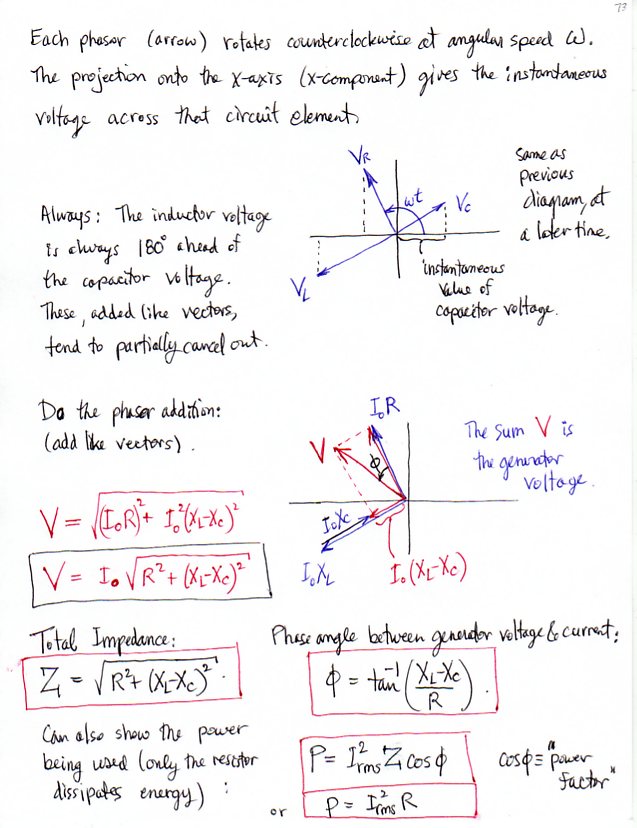 73
Each phasor (arrow) rotates counterclockwise at angular speed ω.
The projection onto the x-axis (x-component) gives the instantaneous
voltage across that circuit element.
V_R
ωt
V_C
V_L
instantaneous
value of
capacitor voltage.
Same as
previous
diagram, at
a later time.
Always: The inductor voltage
is always 180° ahead of
the capacitor voltage.
These, added like vectors,
tend to partially cancel out.
Do the phasor addition:
(add like vectors).
I₀R
V
φ
I₀X_C
I₀X_L
I₀(X_L-X_C)
The sum V is
the generator
voltage.
V = √((I₀R)² + I₀²(X_L-X_C)²)
V = I₀ √(R² + (X_L-X_C)²)
Total Impedance:
Z = √(R² + (X_L-X_C)²) .
Phase angle between generator voltage & current:
φ = tan⁻¹((X_L-X_C)/R) .
Can also show the power
being used (only the resistor
dissipates energy) :
P = I²rms Z cosφ
or P = I²rms R
cosφ ≡ "power
factor"